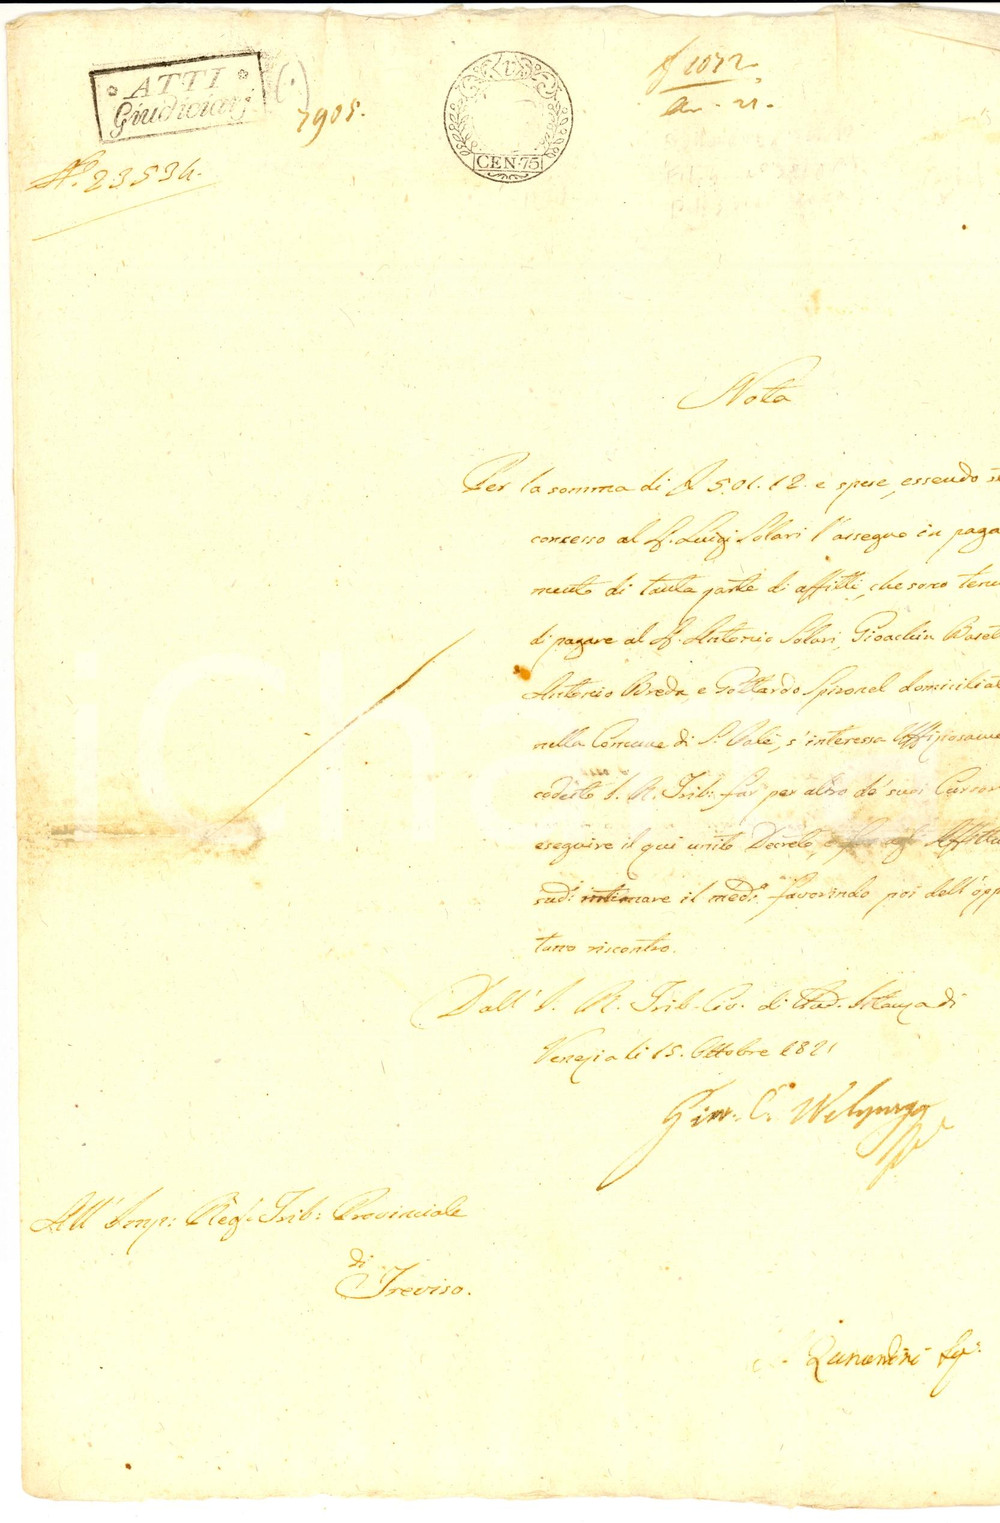 ATTI
Giudiciarj
7905.
CEN. 75
1072
21.
N.° 23534.
Nota
Per la somma di 501.12 e spese, essendo st
concesso al S. Luigi Solari l'assegno in paga
mento di tanta parte di affitti, che sono tenu
di pagare al S. Antonio Solari, Gioachin Baset
Antonio Breda, e Gottardo Spironel domiciliat
nella Comune di S. Palè, s'interessa Offiziosame
codesto I. R. Trib: far per altro de' suoi Cursor
eseguire il qui unito Decreto, e far agli Affittu
sud: intimare il med:° favorindo poi dell'opp
tuno riscontro.
Dall' I. R. Trib. Civ. di Istanza di
Venezia li 15. Ottobre 1821
All' Imp: Reg: Trib: Provinciale
di
Treviso.